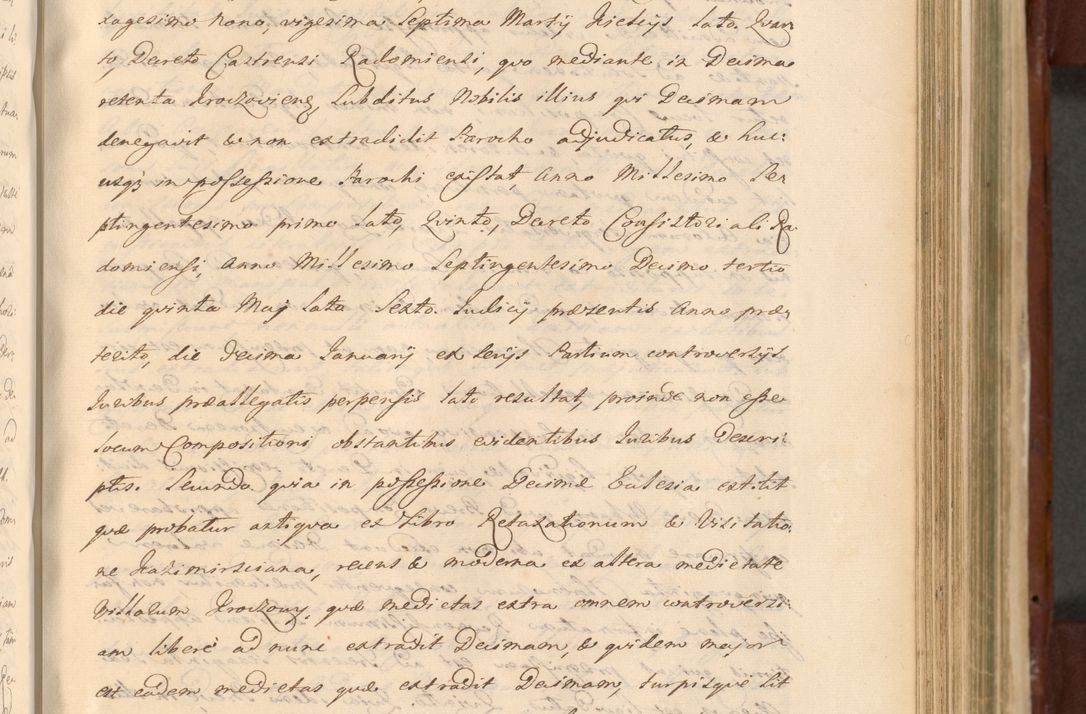 xagesimo Nono, vigesima Septima Martij Kielcijs lato. Quar
to, Decreto Castrensi Radomiensi, quo mediante in Decima
retenta Kroczoviens, Subditus Nobilis illius qui Decimam
denegavit & non extradidit Parocho adjudicatus, & huc:
usq3 in possessione Parochi existat, Anno Millesimo Se
ptingentesimo primo lato, Quinto, Decreto Consistoriali Ra
domiensi, Anno Millesimo Septingentesimo Decimo tertio
die quinta Maij lata Sexto. Iudicij præsentis Anno præ
terito, die Decima Ianuarij ex serijs Partium controversijs
Iuribus præallegatis perpensis lato resultat, proinde non esse
locum Compositioni obstantibus evidentibus Iuribus Descri
ptis. Secundo quia in possessione Decimæ Eclesia extitit
quæ probatur antiqua ex Libro Retaxationum & Visitatio
ne Kazimirsciana, recens & moderna ex altera medietate
Villarum Kroczowy, quæ medietas extra omnem controversi:
am libere ad nunc extradit Decimam, & quidem major
est eadem medietas quæ extradit Decimam, turpisque sit